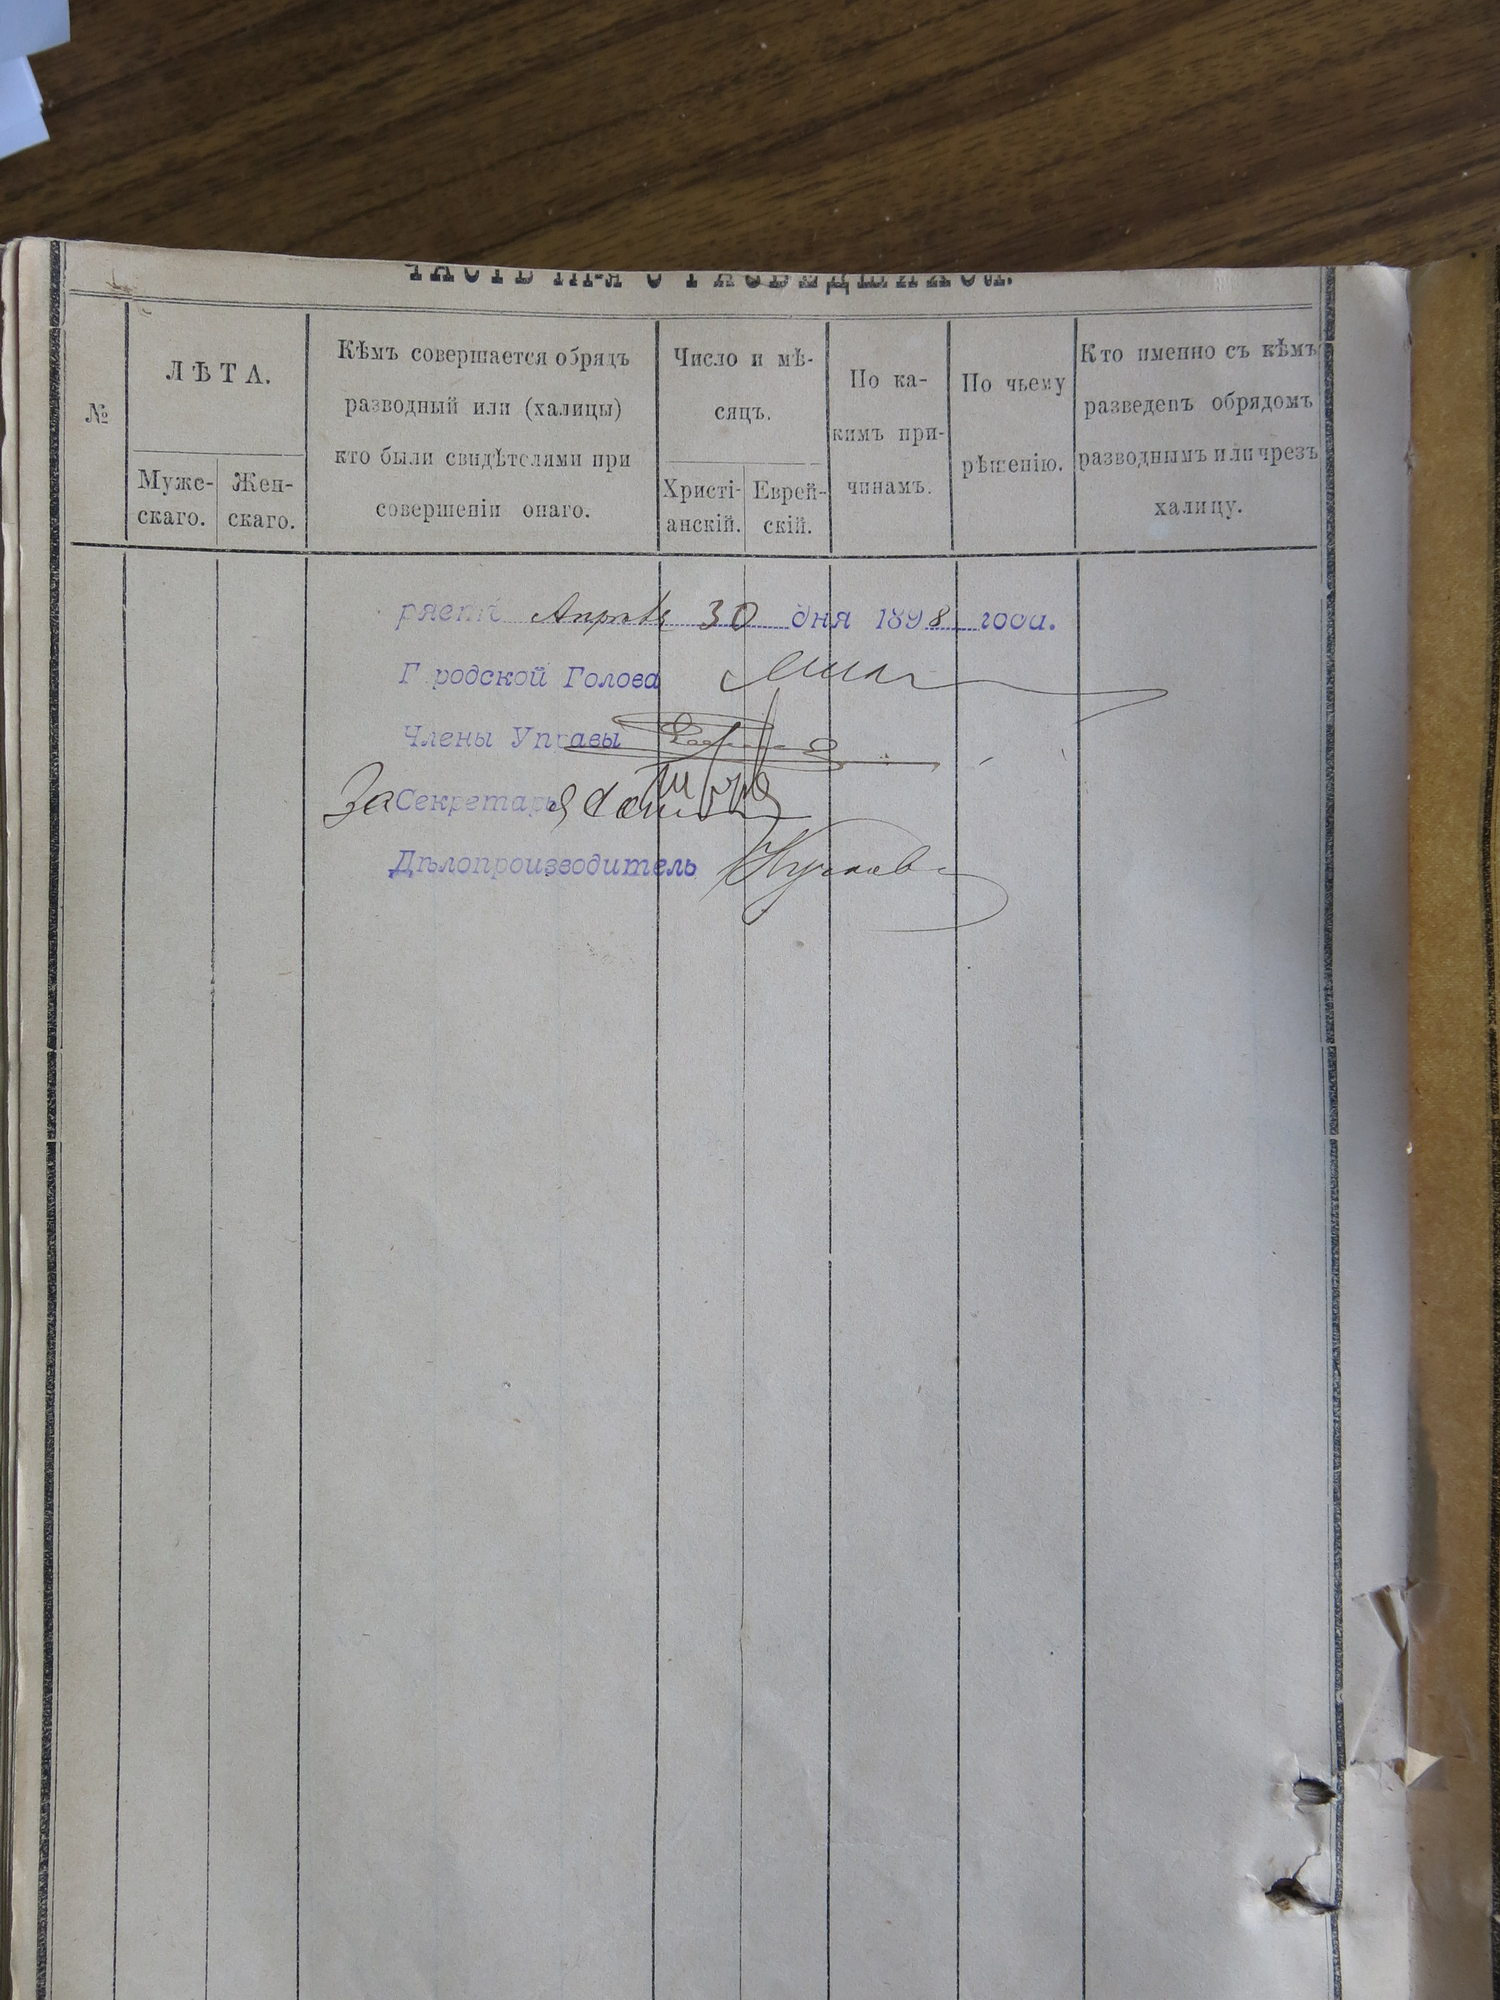 ЧАСТЬ III-я О РАЗВЕДШИХСЯ.
№
ЛѢТА.
Муже-
скаго.
Жен-
скаго.
Кѣмъ совершается обрядъ
разводный или (халицы)
кто были свидѣтелями при
совершеніи онаго.
Число и мѣ-
сяцъ.
Христі-
анскій.
Еврей-
скій.
По ка-
кимъ при-
чинамъ.
По чьему
рѣшенію.
Кто именно съ кѣмъ
разведенъ обрядомъ
разводнымъ или чрезъ
халицу.
Апрѣля 30 дня 1898 года.
Городской Голова
Члены Управы
За Секретаря
Дѣлопроизводитель